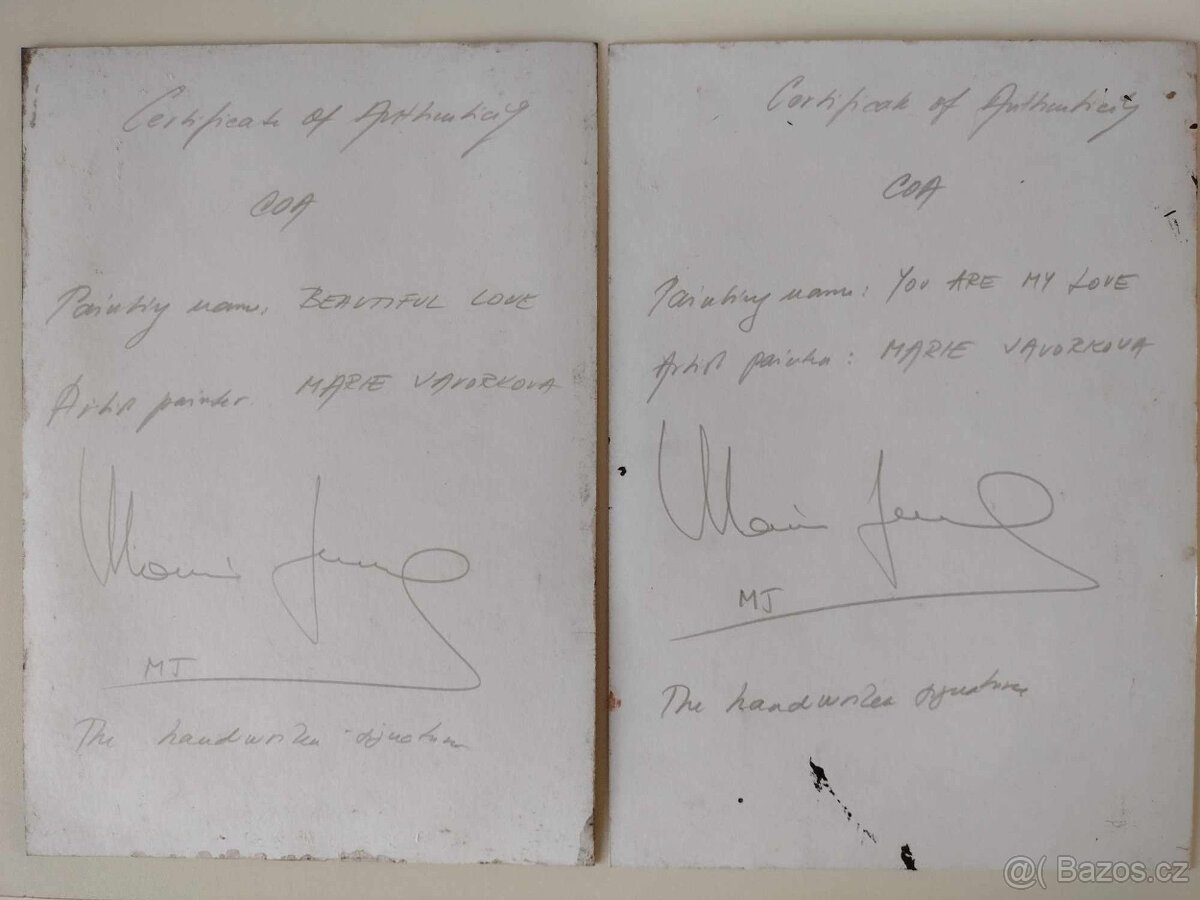 Certificate of Authenticity
COA
Painting name: BEAUTIFUL LOVE
Artist painter: MARIE VAVORKOVA
MJ
The handwriten signature
Certificate of Authenticity
COA
Painting name: YOU ARE MY LOVE
Artist painter: MARIE VAVORKOVA
MJ
The handwriten signature
@( Bazos.cz